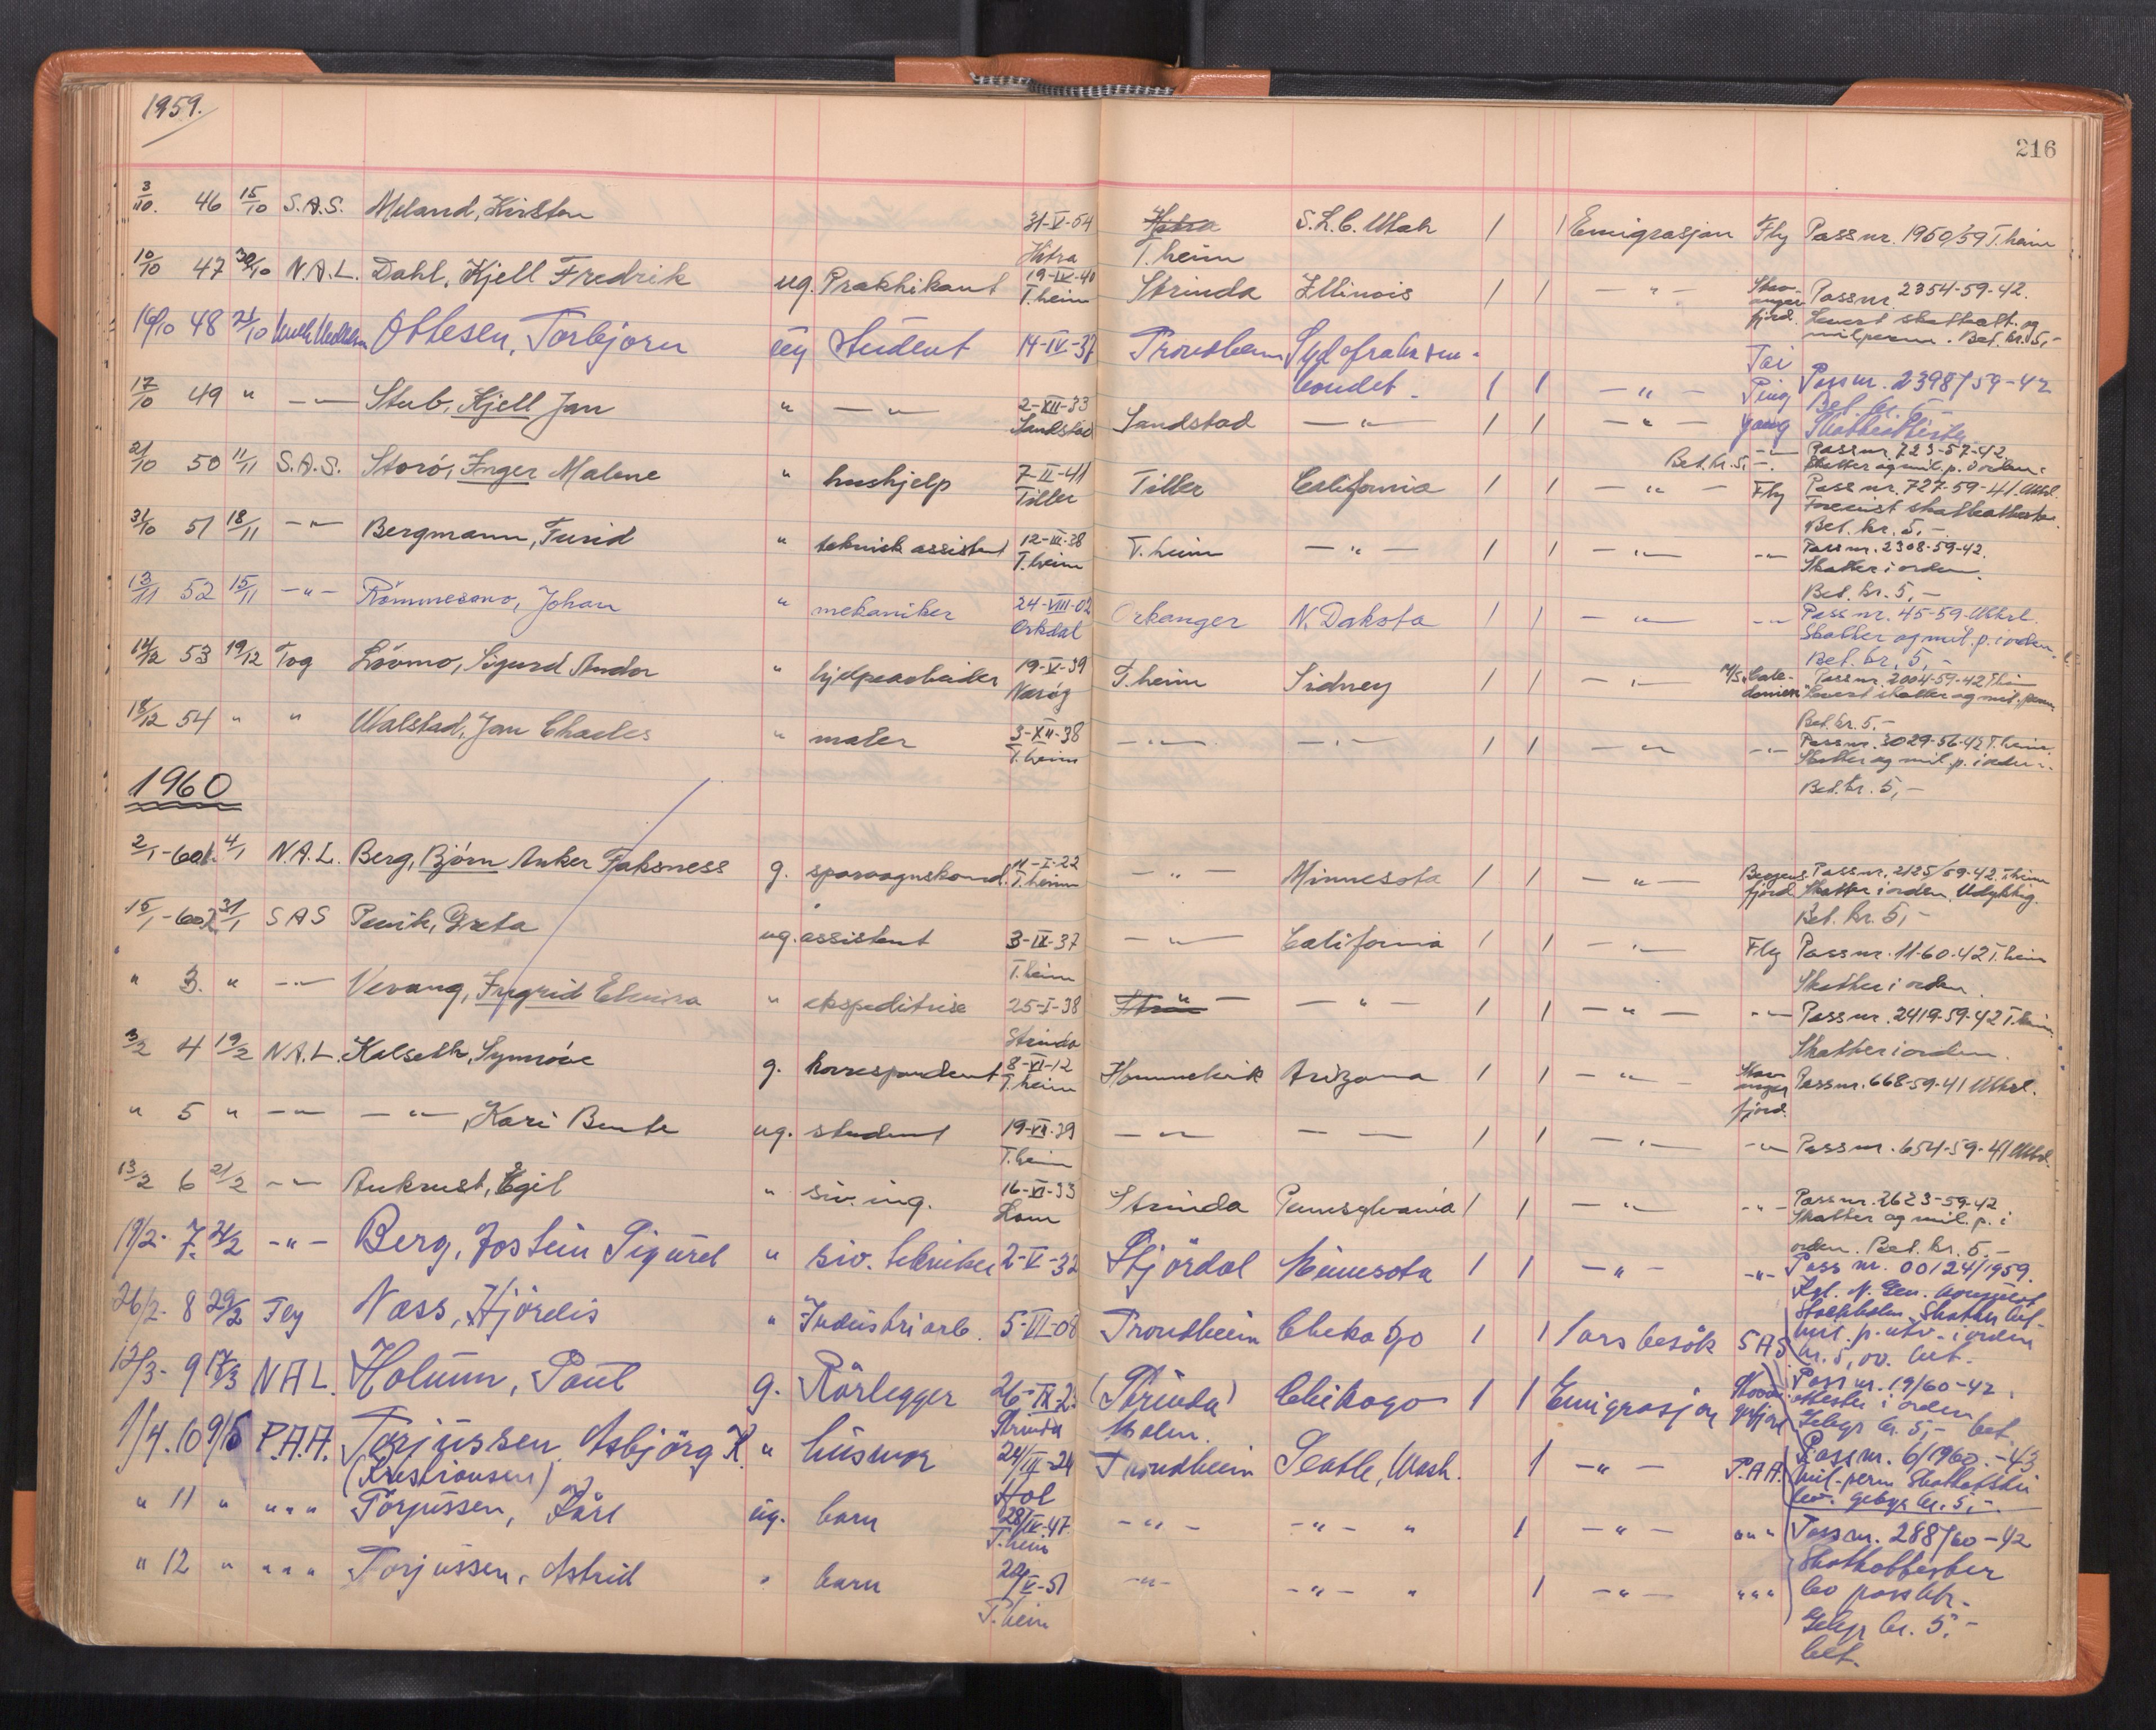 1959.
216
3/10. 46 15/10 S.A.S. Meland, Kirsten 31-V-04 Hitra Hitra T.heim S.L.C. Utah 1 1 Emigrasjon Fly Pass nr. 1950/59 T.heim
10/10 47 30/10 N.A.L. Dahl, Kjell Fredrik ug. Praktikant 19-IX-40 T.heim Strinda Illinois 1 1 -"- Stavangerfjord. Passnr 2354-59-42.
Levert skatteatt. og milperm. Bet. kr. 5,-
16/10 48 21/10 Ottesen, Torbjørn ug Student 14-IV-37 Trondheim 1 1 -"- Tai Ping Yang Passnr. 2398/59-42
Bet. kr. 5
17/10 49 " -"- Stub, Kjell Jan " -"- 2-XII-33 Sandstad Sandstad -"- 1 1 -"- -"- Passnr. 723-57-42
Skatter og mil.p. i orden.
Bet. kr. 5,-.
21/10 50 11/11 S.A.S. Storø, Inger Malene " hushjelp 7-II-41 Tiller Tiller California 1 1 -"- Fly Pass nr. 727-59-41. Utstrl.
Bet. kr. 5,-
31/10 51 18/11 -"- Bergmann, Turid " teknisk assistent 12-III-38 T.heim T.heim -"- 1 1 -"- -"- Passnr. 2308-59-42.
Skatter i orden.
Bet. kr. 5,-
13/11 52 15/11 -"- Rømmesmo, Johan " mekaniker 24-VIII-02 Orkdal Orkanger N. Dakota 1 1 -"- -"- Pass nr. 45-59-Utstrl.
Skatter og mil.p. i orden.
Bet. kr. 5,-
14/12 53 19/12 Tog Løvmo, Sigurd Andor " hjelpearbeider 19-V-39 T.heim Sidney 1 1 -"- M/S Caledonien Passnr. 2004-59-42 T.heim
Levert skatter og mil.perm
Bet. kr. 5.-
18/12 54 " " Walstad, Jan Charles " maler 3-XII-38 T.heim -"- -"- 1 1 -"- -"- Passnr. 3029-56-42 T.heim.
Skatter og mil.p. i orden.
Bet. kr. 5,-
1960
2/1-60 1. 4/1 N.A.L. Berg, Bjørn Anker Faksness g. sporvognskond. 11-I-22 T.heim -"- Minnesota 1 1 -"- Bergensfjord Passnr. 2125/59-42 T.heim
Skatter i orden.
Bet. kr. 5,-
15/1-60 2. 31/1 SAS Greta ug. assistent 3-IX-37 T.heim -"- California 1 1 -"- Fly Passnr. 11-60-42 T.heim
Skatter i orden.
" 3. " -"- Vevang, Ingrid Elvira " ekspeditrise 25-I-38 Strinda -"- -"- 1 1 -"- -"- Passnr. 2419-59-42 T.heim.
Skatter i orden.
3/2 4 19/2 N.A.L. Kalseth, Synnøve g. korrespondent 8-VI-12 T.heim Hommelvik Arizona 1 1 -"- Stavangerfjord. Passnr. 668-59-41 Utstrl.
" 5 " -"- -"-, Kari Bente ug. student 19-VII-39 T.heim -"- -"- 1 1 -"- -"- Passnr. 654-59-41 Utstrl.
13/2 6 21/2 -"- Aukrust, Egil " siv.ing. 16-XI-33 Lom Strinda Pennsylvania 1 1 -"- -"- Passnr. 2623-59-42
Skatter og mil.p. i
orden. Bet. kr. 5.-
19/2- 7. 21/2 -"- Berg, Jostein Sigurd " siv. tekniker 2-V-32 Stjördal Minnesota 1 1 -"- -"- Pass nr. 00124/1959.
Kgl. N. Gen. konsulat
Stockholm.
26/2- 8 29/2 Fly Næss, Hjördis " Industriarb. 5-VI-08 Trondheim Chikago 1 1 1 års besök SAS
kr. 5,00. bet.
12/3- 9 17/3 NAL. Holumn, Paul g. Rörlegger 26-IX-2 Strinda (Strinda) Malm. Chikago 1 1 Emigrasjon Pass nr. 19/60-42.
attester i orden
Gebyr kr. 5,- bet.
1/4. 10 9/5 P.A.A. Torjussen, Asbjörg K. (Kristiansen) " húsmor 24/III-24 Hol Trondheim Seatle, Wash. 1 -"- P.A.A. Passnr. 6/1960.-43
gebyr kr. 5,-
" 11 " " " " Torjussen, Kåre ug. barn 28/IV-47. T.heim -"- -"- " 1 -"- " " " Passnr. 288/60-42
Skatteattester
" 12 " " " " Torjussen, Astrid " barn 22/V-51 T.heim -"- -"- " 1 -"- " " "
Gebyr kr. 5.-
bet.